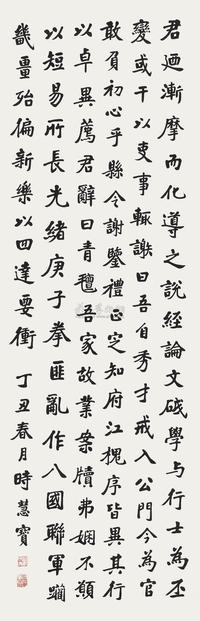 君迺漸摩而化導之說經論文砥學与行士為丕
變或干以吏事輒謝曰吾自秀才戒入公門今為官
敢負初心乎縣令謝鑒禮正定知府江槐序皆異其行
以卓異薦君辭曰青氊吾家故業案牘弗嫻不願
以短易所長光緒庚子拳匪亂作八國聯軍躪
畿疆殆偏新樂以四達要衝 丁丑春月時慧寶